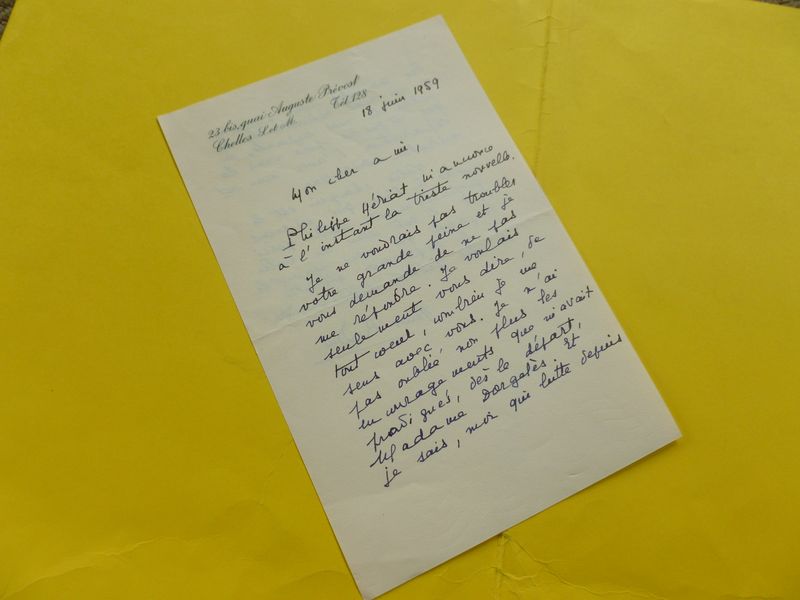 23 bis, quai Auguste Prévost
Chelles S. et M.
Tél 128
18 juin 1959
Mon cher ami,
Philippe Hériat m'annonce
à l'instant la triste nouvelle.
Je ne voudrais pas troubler
votre grande peine et je
vous demande de ne pas
me répondre. Je voulais
seulement vous dire, de
tout coeur, combien je me
sens avec vous. Je n'ai
pas oublié, non plus les
encouragements que m'avait
prodigués, dès le départ,
Madame Dorgelès. Et
je sais, moi qui lutte depuis